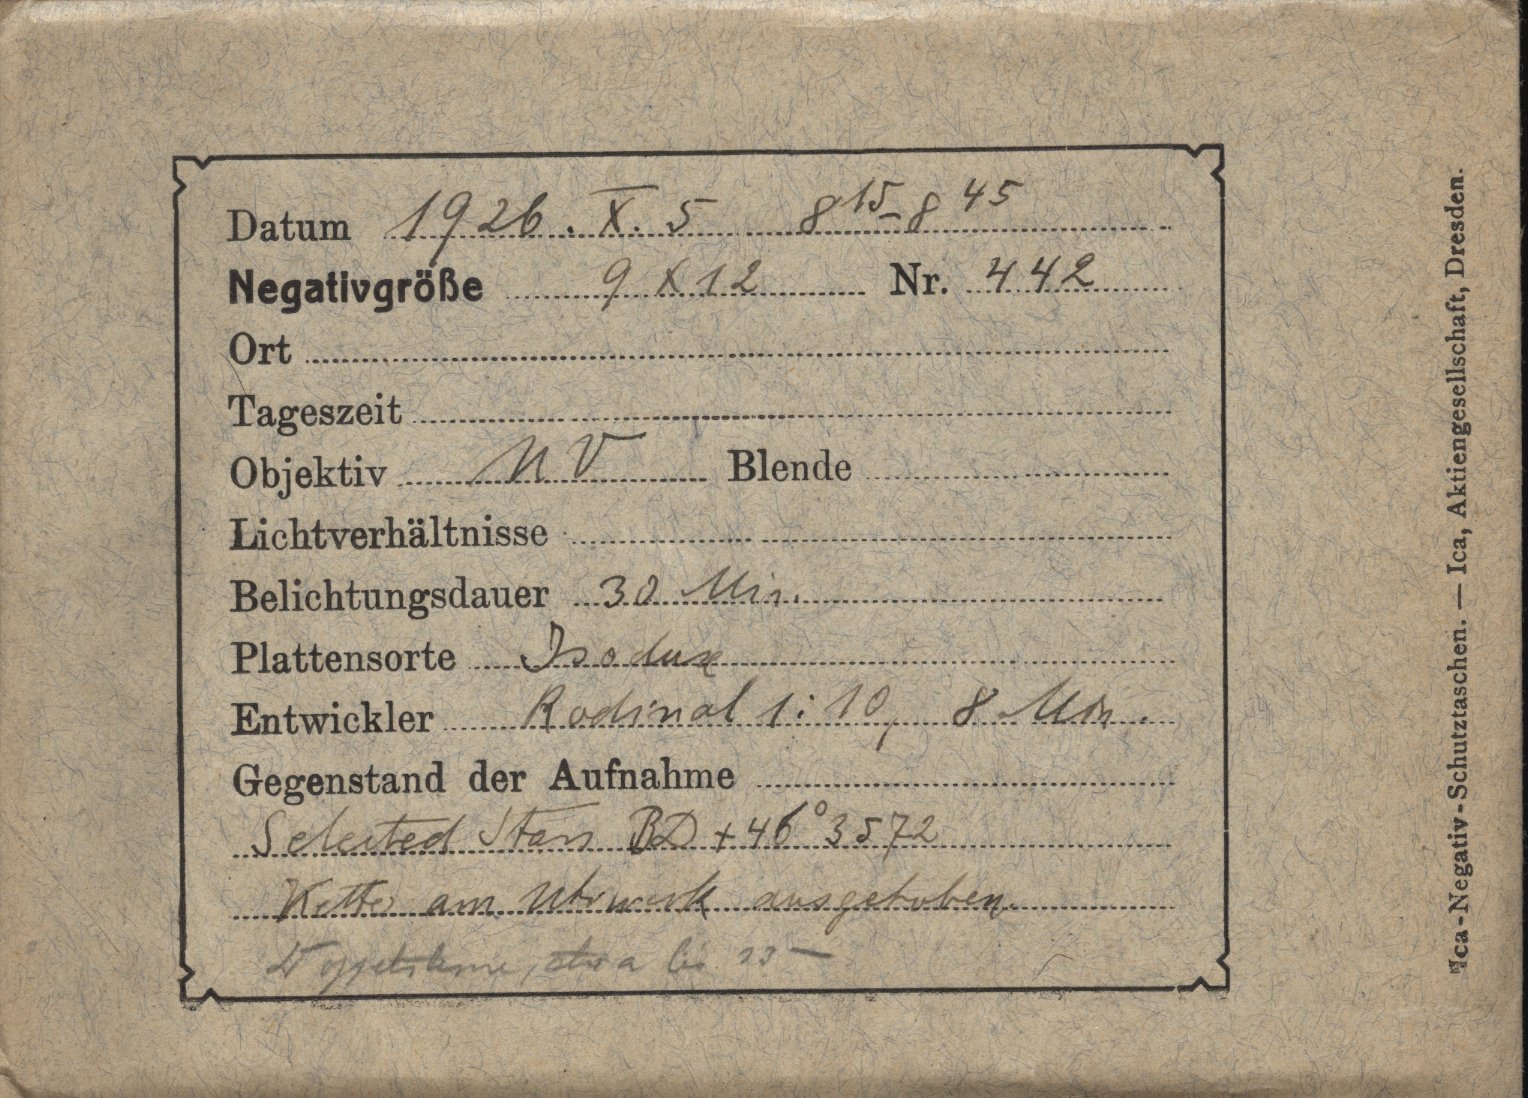 Datum 1926. X. 5 8 15 - 8 45
Negativgröße 9 X 12 Nr. 442
Ort
Tageszeit
Objektiv UV Blende
Lichtverhältnisse
Belichtungsdauer 30 Min.
Plattensorte Isodux
Entwickler Rodinal 1:10, 8 Min.
Gegenstand der Aufnahme
Selected Stars BD +46° 3572
Kette am Uhrwerk ausgehoben.
Doppelsterne, etwa bis 13
Ica-Negativ-Schutztaschen. — Ica, Aktiengesellschaft, Dresden.